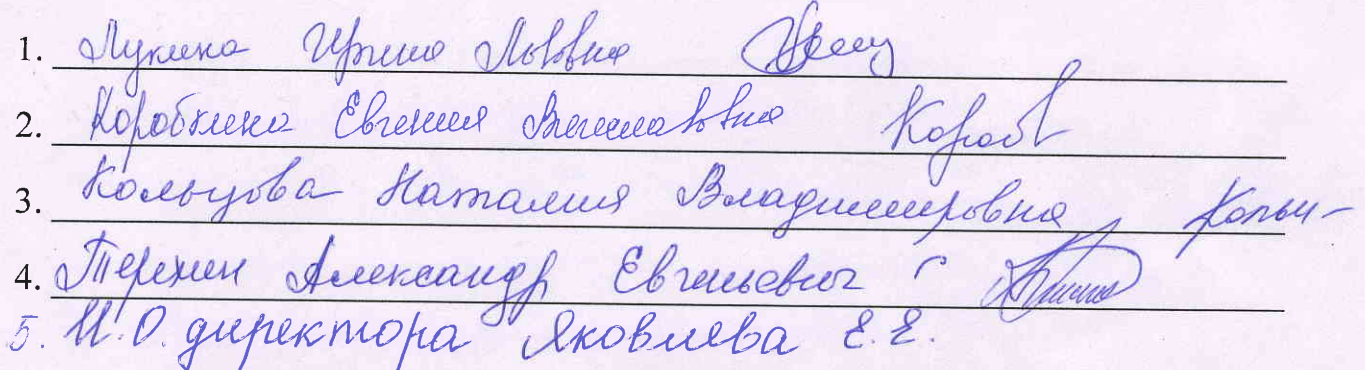 1. Лукина Ирина Львовна
2. Коробкина Евгения Вячеславовна Короб
3. Кольцова Наталия Владимировна, Кольц-
4. Терехин Александр Евгеньевич
5. И.О. директора Яковлева Е.Е.